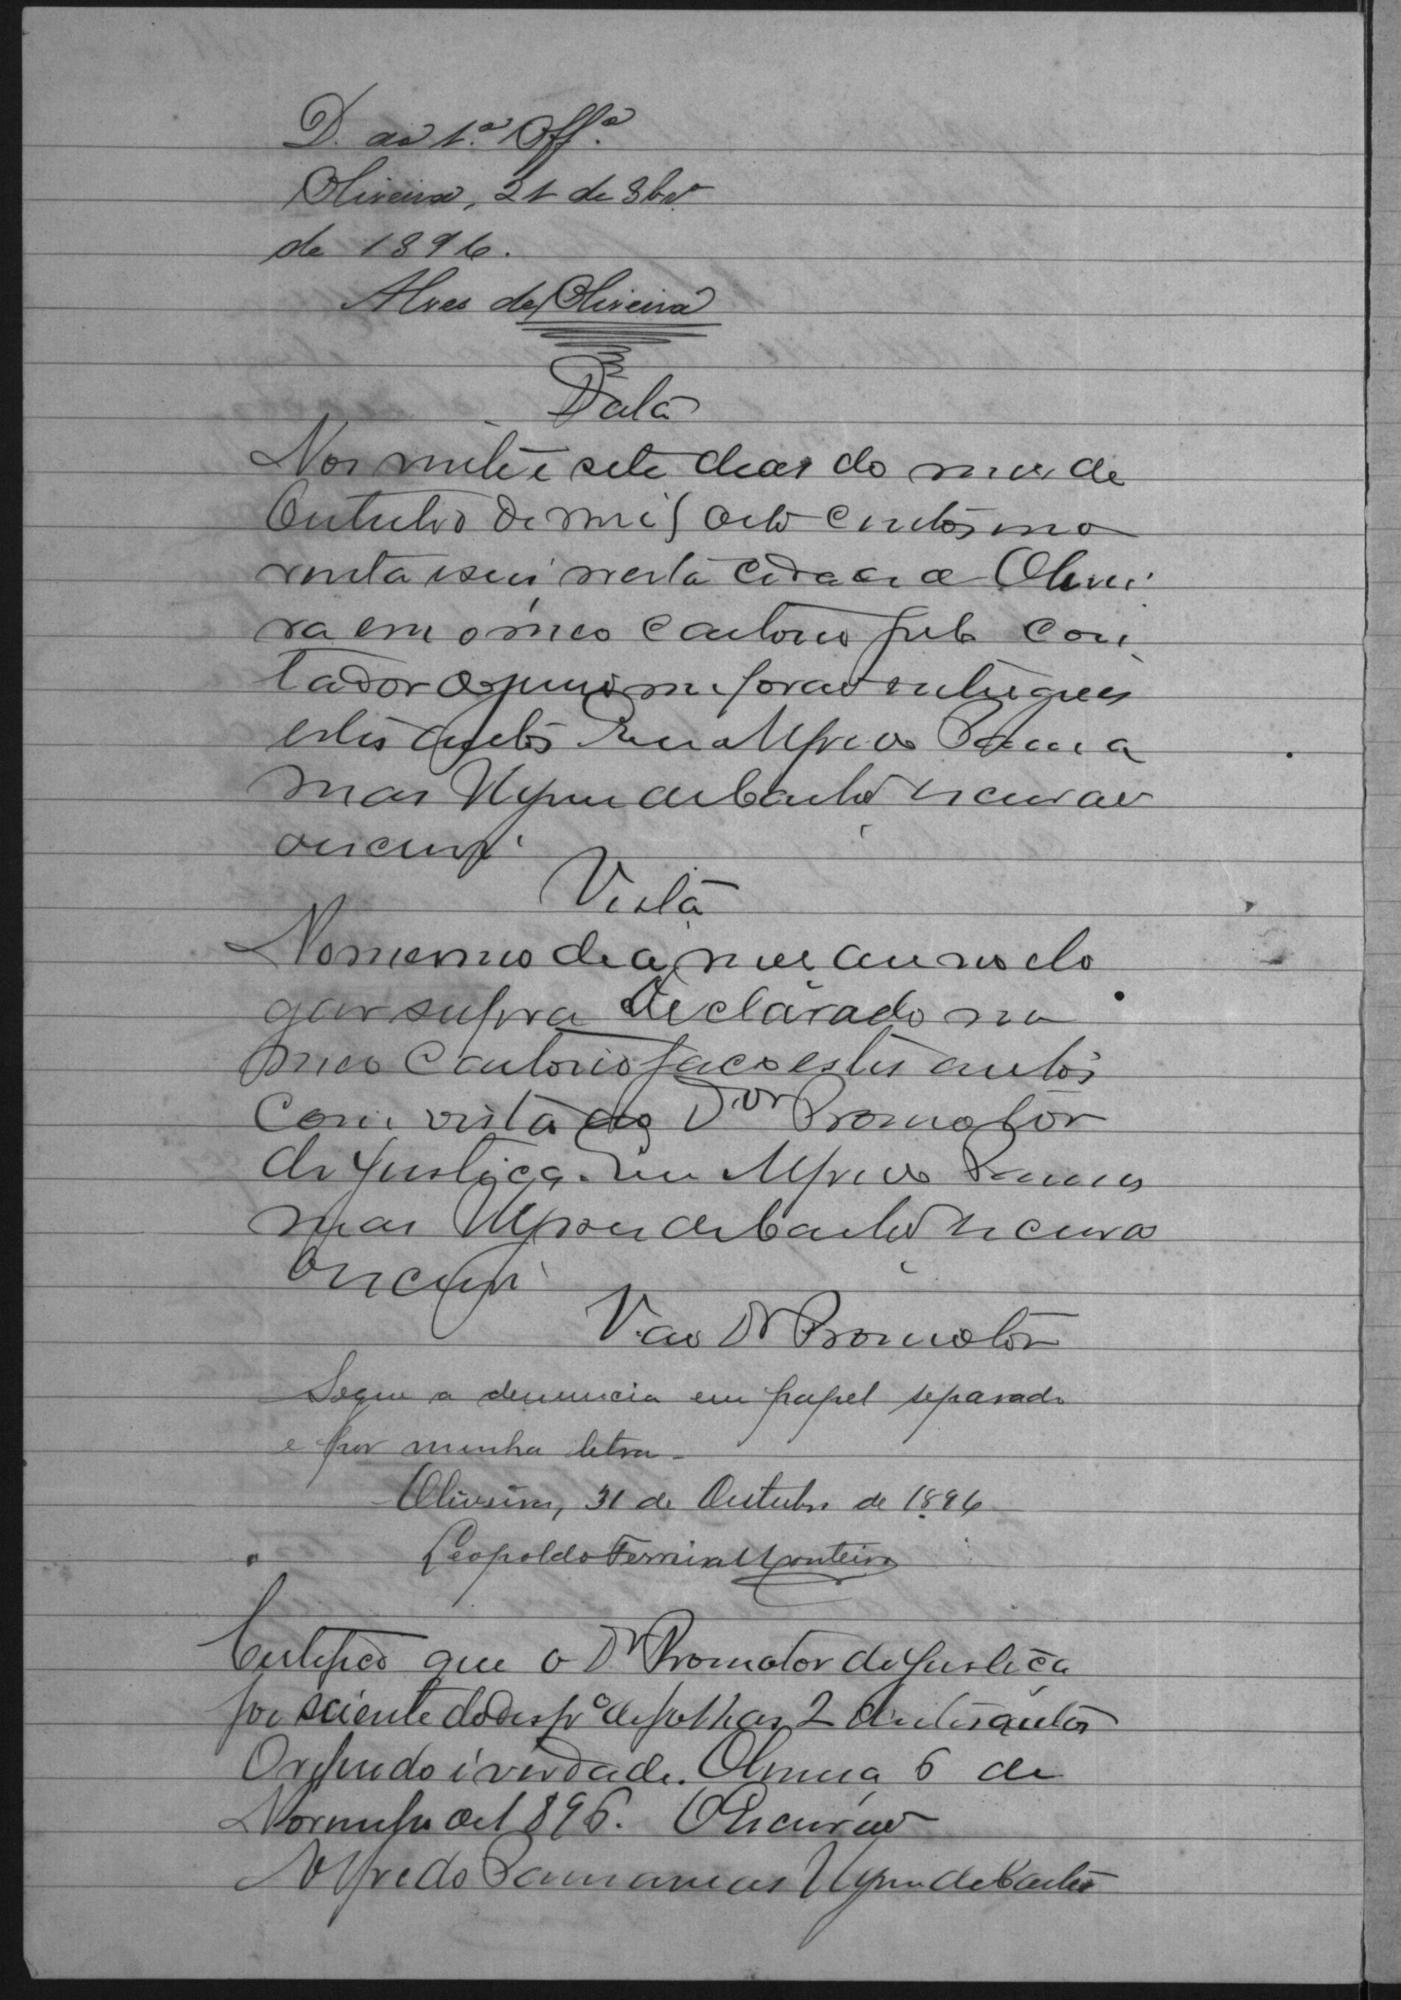 D. ao 1.º Off.º
Oliveira, 21 de 8br.º
de 1896.
Alves de Oliveira
Data
Nos vinte e sete dias do mes de
Outubro de mil oito centos e no
venta e seis nesta cidade de Olivei
ra em o meo Cartorio pelo Con
tador me forao entregues
estes autos Eu Alfredo Parana
mas escrivão
o escrevi
Vista
No mesmo dia mes anno e lo
gar supra declarado no
meo Cartorio faço estes autos
com vista ao Dor Promotor
de Justiça. Eu Alfredo Parana
mas escrivão
o escrevi
V. ao Dr Promotor
Segue a denuncia em papel separado
e por minha letra.
Oliveira, 31 de Outubro de 1896
Leopoldo Ferreira Monteiro
Certifico que o Dr Promotor de Justiça
foi sciente do desp.º de folhas 2 destes autos
O referido é verdade. Oliveira 6 de
Novembro de 1896. O Escrivão
Alfredo Paranamas